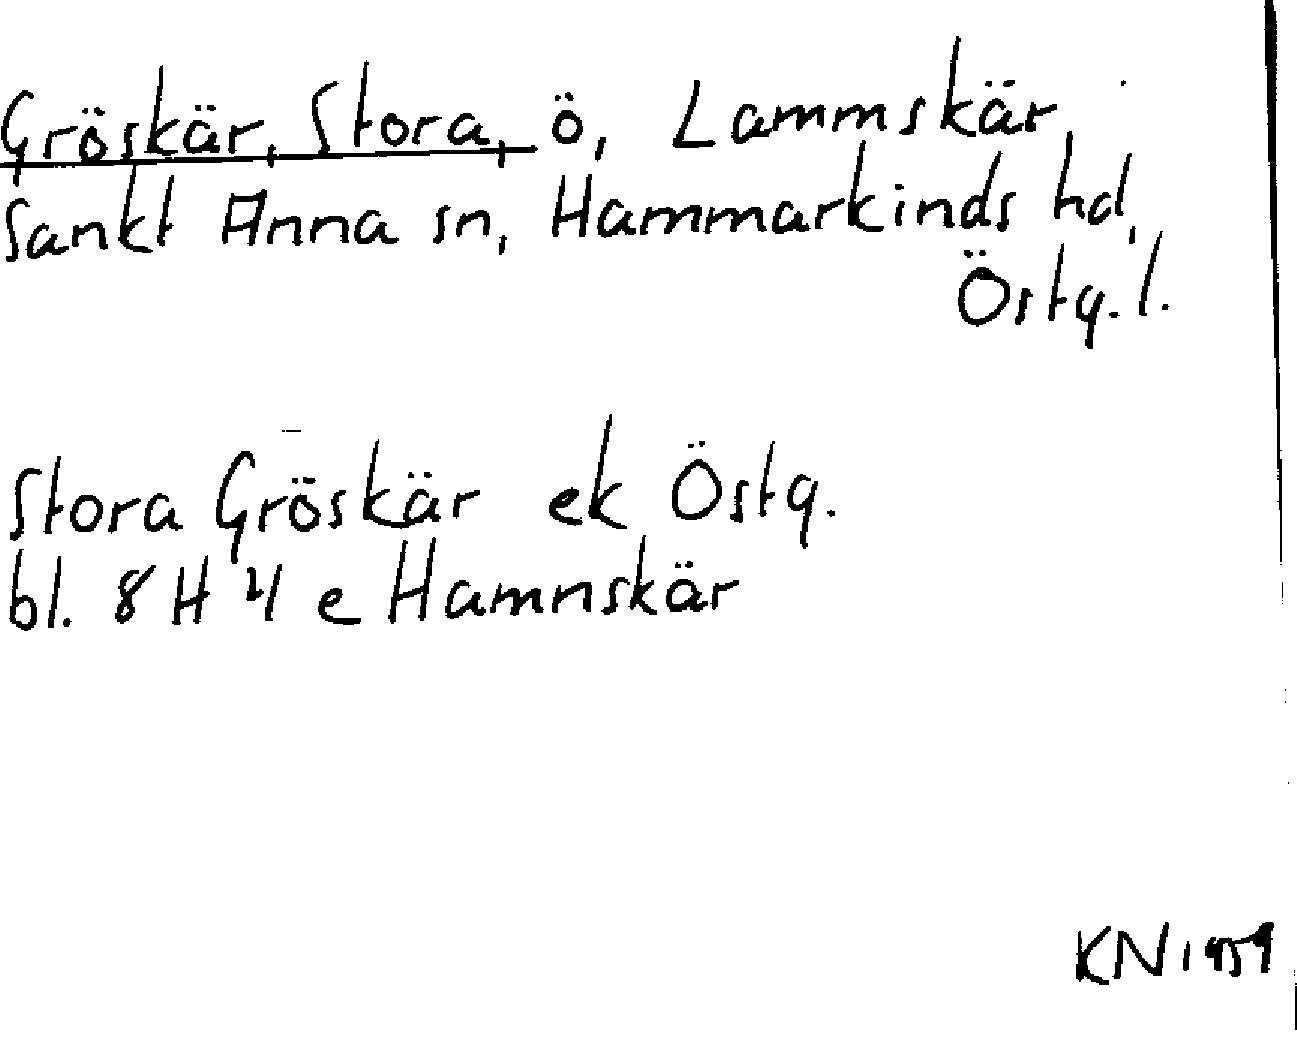 Gröskär, Stora, ö, Lammskär,
Sankt Anna sn, Hammarkinds hd,
Östg. l.
Stora Gröskär ek Östg.
bl. 8 H 4 e Hamnskär
KN 1959